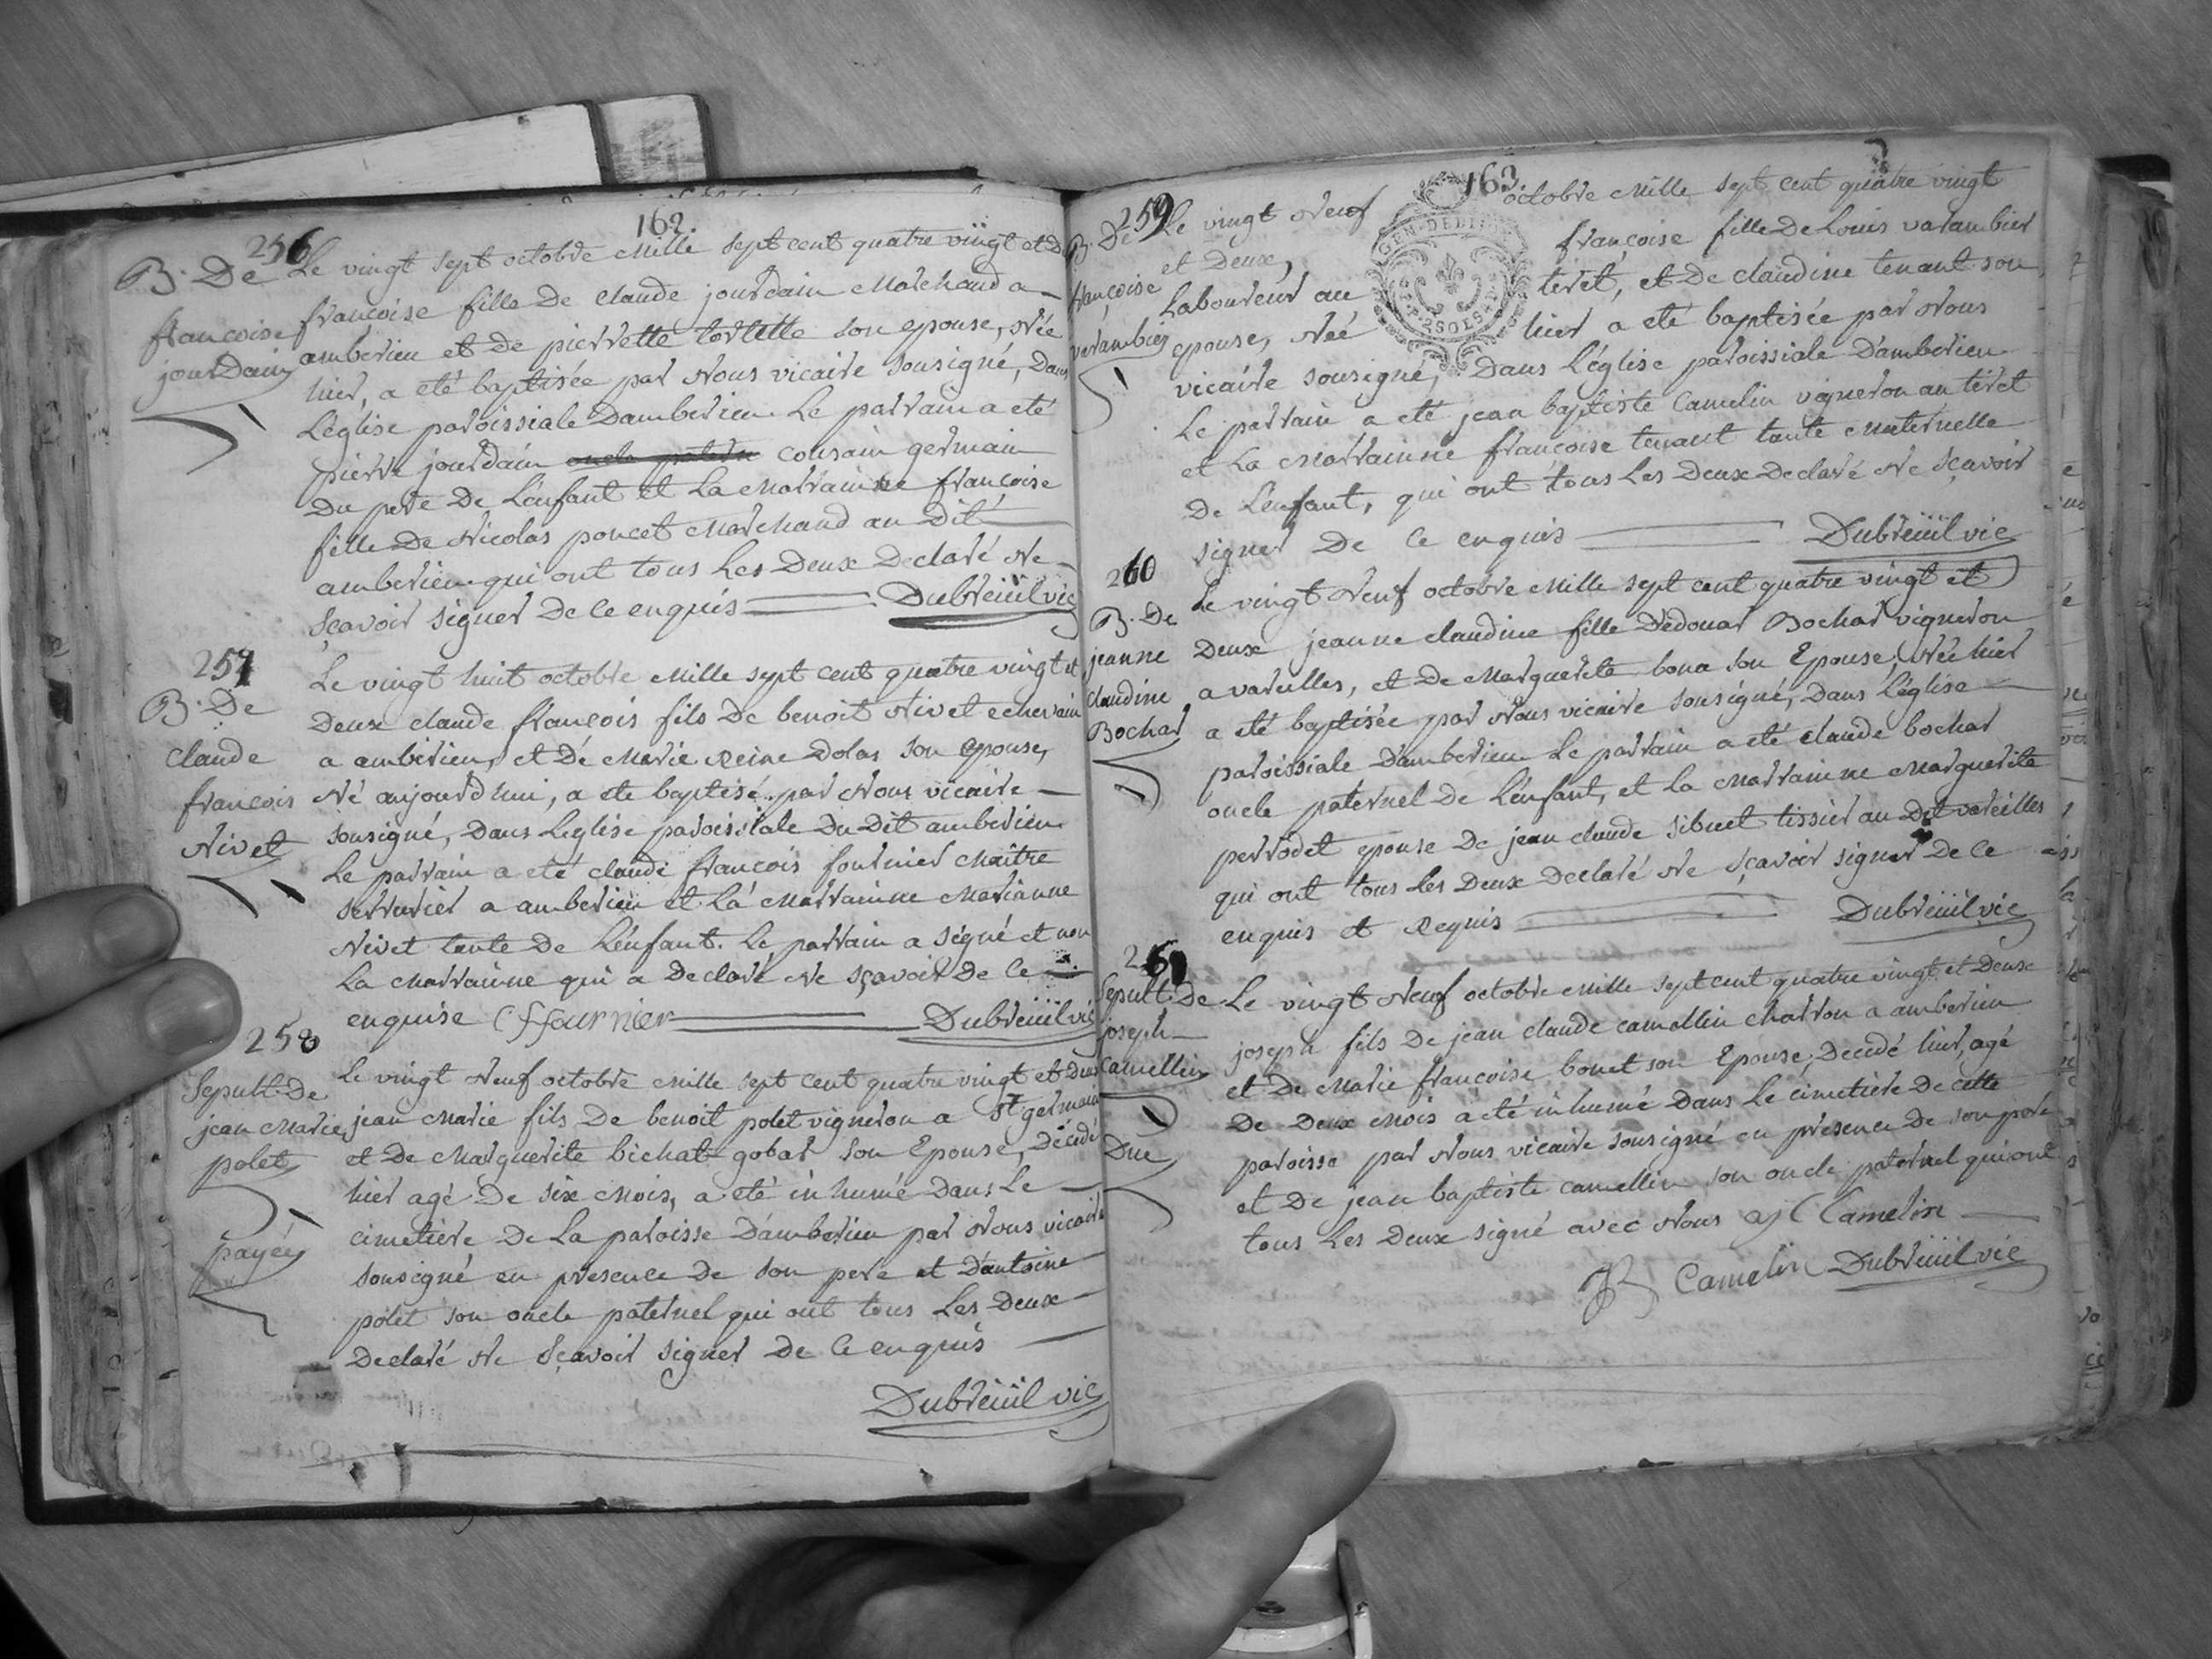 162.
256
B. De
francoise
jourdain
Le vingt sept octobre mille sept cent quatre vingt et d
francoise fille de claude jourdain marchand a
amberieu et de pierrette tortelle son epouse, née
hier, a eté baptisée par nous vicaire sousigné, dans
L'église paroissiale d'amberieu. Le parrain a eté
pierre jourdain oncle patern cousain germain
du pere de l'enfant et la marrainne francoise
fille de Nicolas poncet marchand au dit
amberieu qui ont tous les deux declaré ne
sçavoir signer de ce enquis Dubreüil vic
257
B. De
claude
francois
Nivet
Le vingt huit octobre mille sept cent quatre vingt et
deux claude francois fils de benoit Nivet echevain
a amberieu, et de marie reine dolas son epouse,
né aujourd'hui, a ete baptisé par nous vicaire
sousigné, dans L'eglise paroissiale du dit amberieu
Le parrain a eté claude francois fournier maître
serrurier a amberieu et la marrainne marianne
Nivet tante de l'enfant. Le parrain a signé et non
la marrainne qui a declaré ne sçavoir de ce
enquise Cffournier Dubreüil vic
258
Sepult. De
jean marie
polet
payée
Le vingt neuf octobre mille sept cent quatre vingt et deux
jean marie fils de benoit polet vigneron a St germain
et de marguerite bichat gobar son Epouse, décedé
hier agé de six mois, a eté inhumé dans le
cimetiere de la paroisse d'amberieu par nous vicaire
sousigné en presence de son pere et d'antoine
polet son oncle paternel qui ont tous les deux
declaré ne sçavoir signer de ce enquis
Dubreüil vic
163
259
B. De
françoise
varambier
Le vingt neuf octobre mille sept cent quatre vingt
et deux, françoise fille de Louis varambier
Laboureur au tiret, et de claudine tenant son
epouse, née hier a eté baptisée par nous
vicaire sousigné, dans L'église paroissiale d'amberieu
Le parrain a eté jean baptiste Camelin vigneron au tiret
et la marrainne francoise tenant tante maternelle
de l'enfant, qui ont tous les deux declaré ne sçavoir
signer de ce enquis Dubreüil vic
GEN. DE LION
260
B. De
jeanne
claudine
Bochar
Le vingt neuf octobre mille sept cent quatre vingt et
deux jeanne claudine fille d'edouar Bochar vigneron
a vareilles, et de marguerite bona son Epouse, née hier
a eté baptisée par nous vicaire sousigné, dans l'église
paroissiale d'amberieu Le parrain a eté claude bochar
oncle paternel de l'enfant, et la marrainne marguerite
perrodet epouse de jean claude sibuet tissier au dit vareilles
qui ont tous les deux declaré ne sçavoir signer de ce
enquis et requis Dubreüil vic
261
Sepult. De
joseph
Camellin
Due
Le vingt neuf octobre mille sept cent quatre vingt et deux
joseph fils de jean claude camellin charron a amberieu
et de marie francoise bonet son Epouse, decedé hier, agé
de deux mois a eté inhumé dans le cimetiere de cette
paroisse par nous vicaire sousigné en présence de son pere
et de jean baptiste camellin son oncle paternel qui ont
tous les deux signé avec nous C Camelin
JB Camelin Dubreüil vic